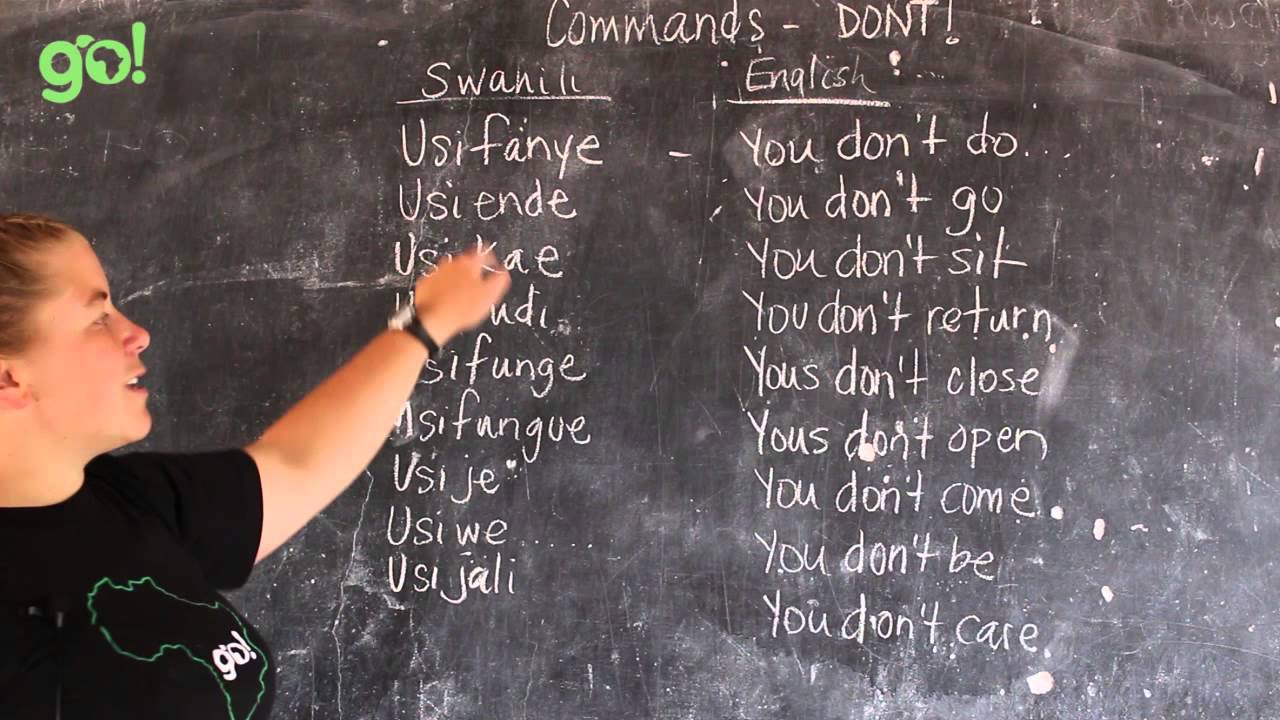 go!
Commands - DONT!
Swahili English
Usifanye - You don't do...
Usiende You don't go
Usikae You don't sit
You don't return
Yous don't close
Msifungue Yous don't open
Usije You don't come..
Usiwe ..... You don't be
Usijali You don't care
go!